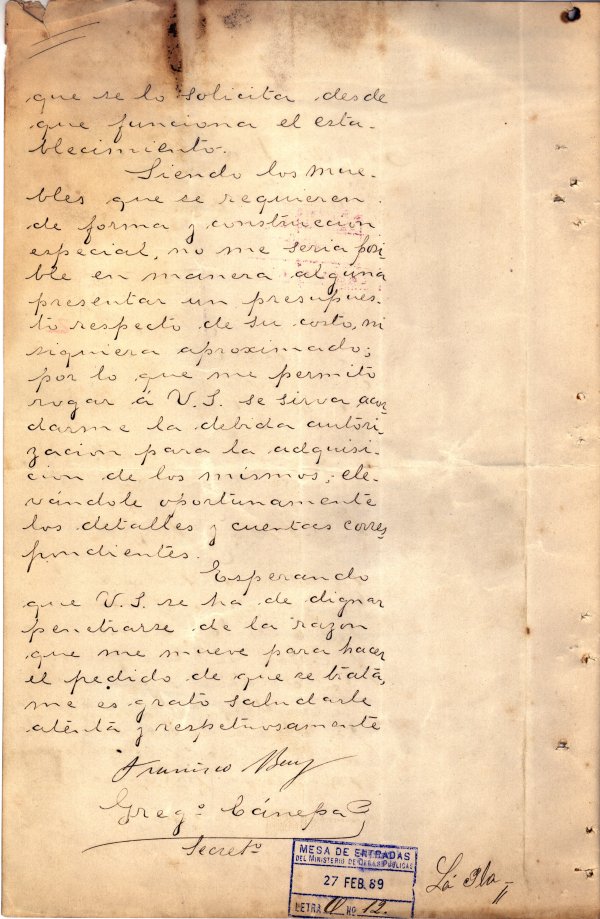 que se lo solicita desde
que funciona el esta-
blecimiento.
Siendo los mue-
bles que se requieren
de forma y construccion
especial, no me seria posi
ble en manera alguna
presentar un presupues-
to respecto de su costo, ni
siquiera aproximado;
por lo que me permito
rogar á V.S. se sirva acor
darme la debida autori-
zacion para la adquisi-
cion de los mismos, ele-
vándole oportunamente
los detalles y cuentas corres
pondientes.
Esperando
que V.S. se ha de dignar
penetrarse de la razon
que me mueve para hacer
el pedido de que se trata,
me es grato saludarle
atenta y respetuosamente
Francisco
Greg.o Cánepa
Secret.o
MESA DE ENTRADAS
DEL MINISTERIO DE OBRAS PÚBLICAS
27 FEB. 89
LETRA No. 12.
La Pla-